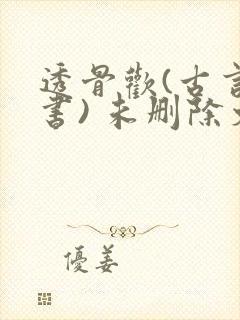 透骨歡(古言
書)未刪除
優姜